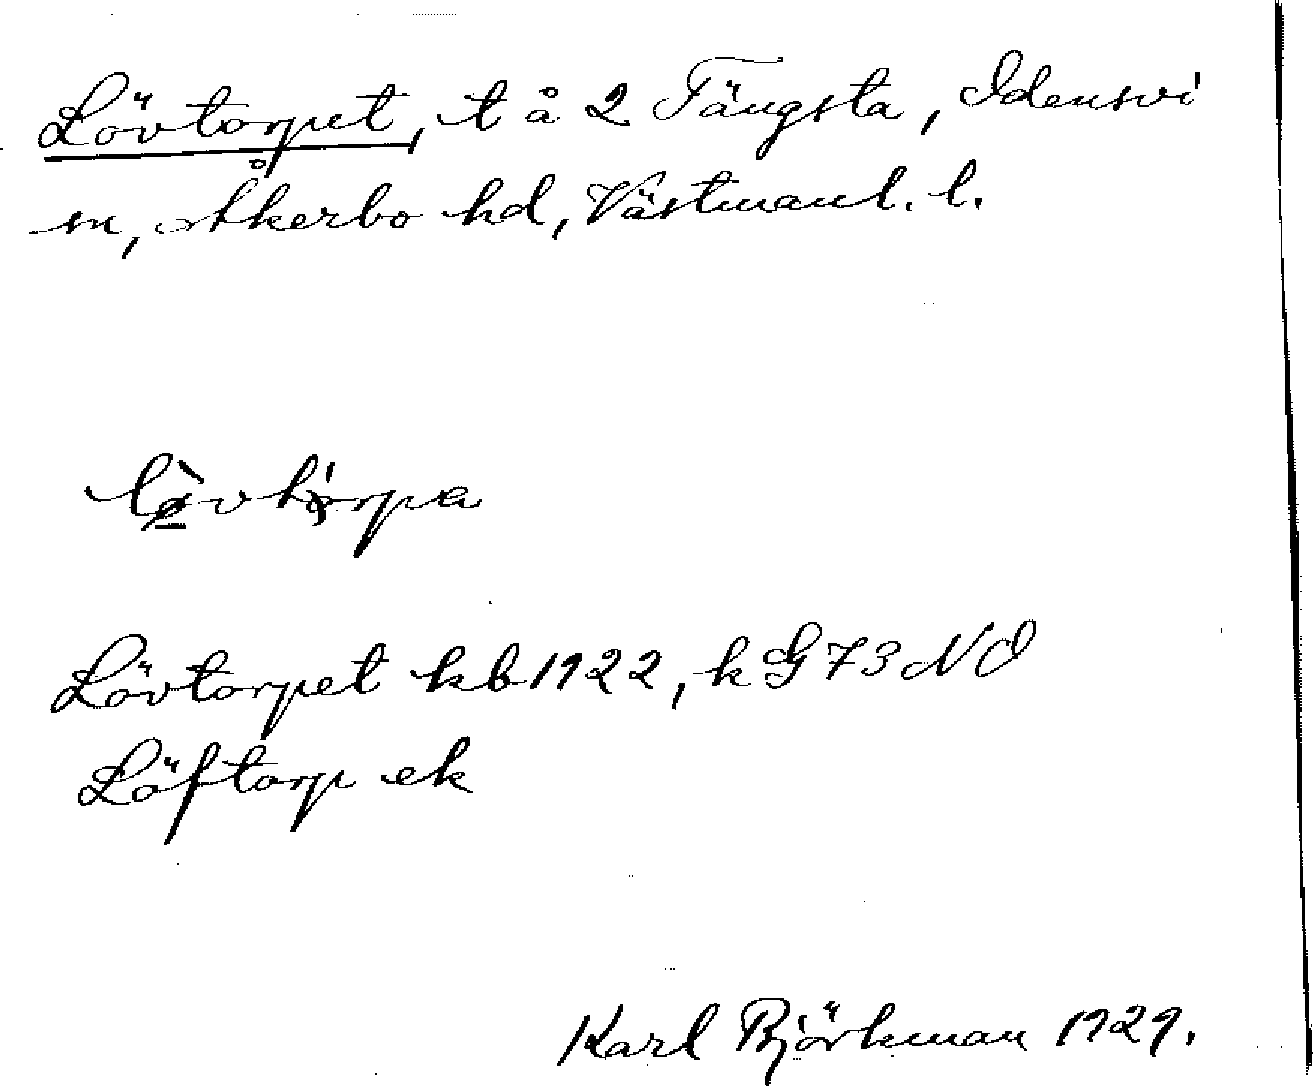 Lövtorpet, t å 2 Tängsta, Idensvi
sn, Åkerbo hd, Västmanl. l.
Lövtorpet kb 1922, k G 73 NO
Löftorp ek
Karl Björkman 1929.